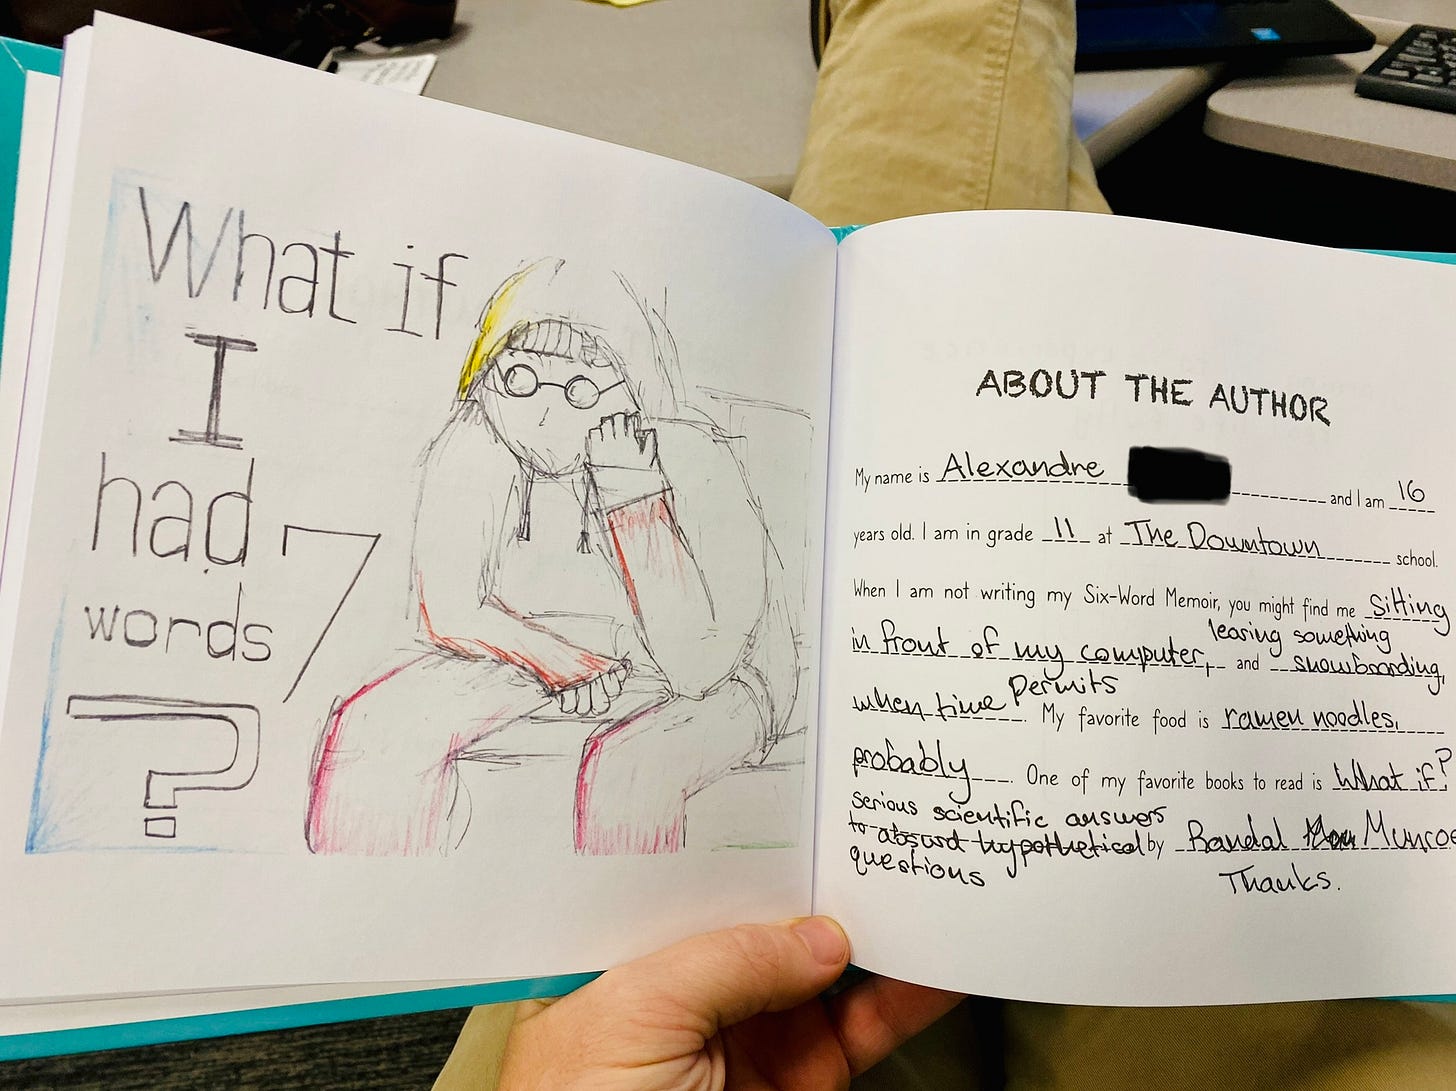 What if
I
had 7
words
?
ABOUT THE AUTHOR
My name is Alexandre and I am 16
years old. I am in grade 11 at The Downtown school.
When I am not writing my Six-Word Memoir, you might find me sitting
in front of my computer, and learing something snowboarding,
when time permits. My favorite food is ramen noodles,
probably. One of my favorite books to read is What if?
serious scientific answers
to absurd hypothetical by Randal Munroe
questions
Thanks.